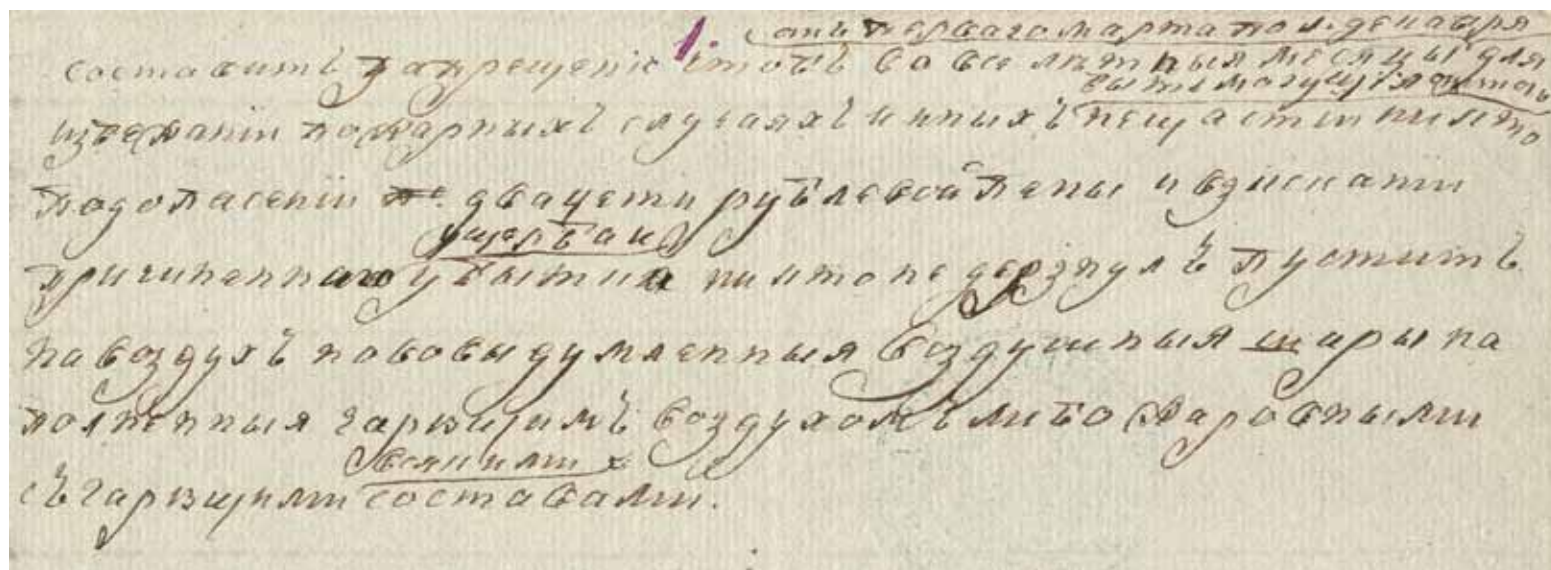 1. отъ перваго марта по 1. декабря
составить запрещение чтобъ во все летныя месяцы для
быть могущихъ
избежании пожарныхъ случаяхъ и иныхъ нещастии никто
под опасении двацети рублевой пены и взискании
ущерба и
причиненнаго убытка никто не дерзнулъ пустить
на воздухъ нововыдумленныя воздушныя шары на
полненныя гарющимъ воздухомъ либо жаровными
всякими
съ гарющими составами.